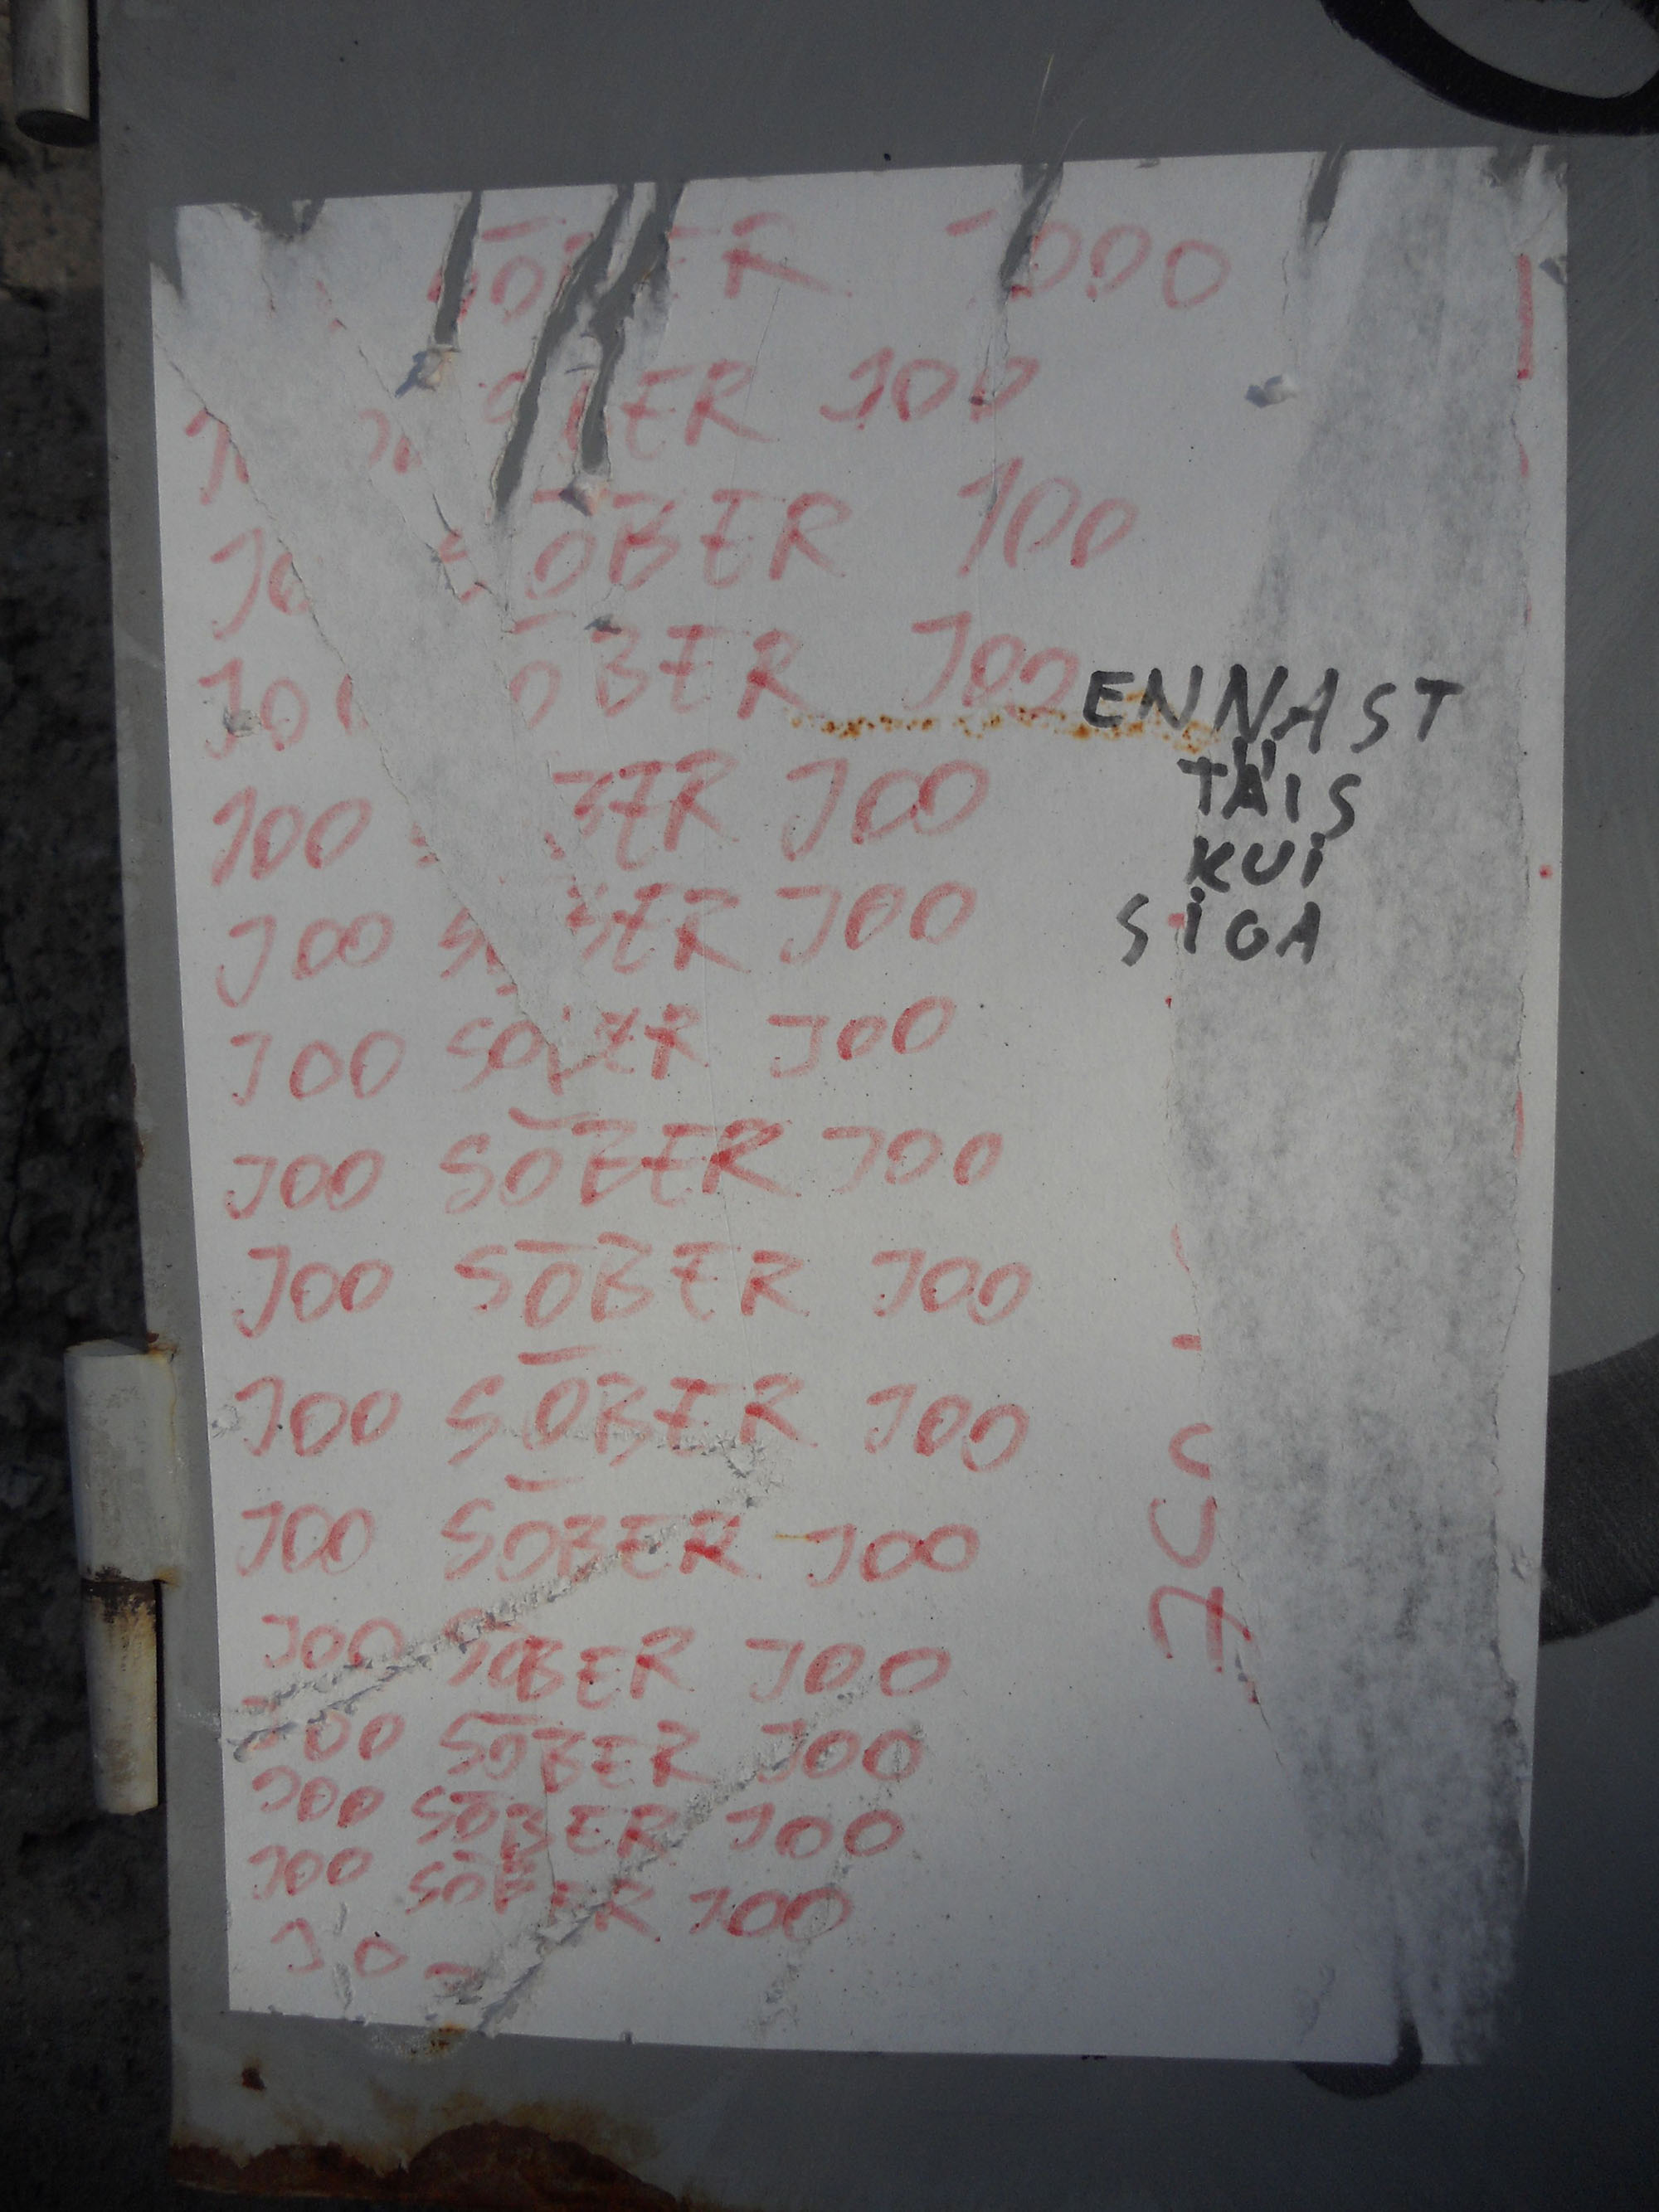 SÕBER JOOO
SÕBER JOO
JOO SÕBER JOO
JOO SÕBER JOO
ENNAST
TÄIS
KUI
SIGA
JOO SÕBER JOO
JOO SÕBER JOO
JOO SÕBER JOO
JOO SÕBER JOO
JOO SÕBER JOO
JOO SÕBER JOO
JOO SÕBER JOO
JOO SÕBER JOO
JOO SÕBER JOO
JOO SÕBER JOO
JOO SÕBER JOO